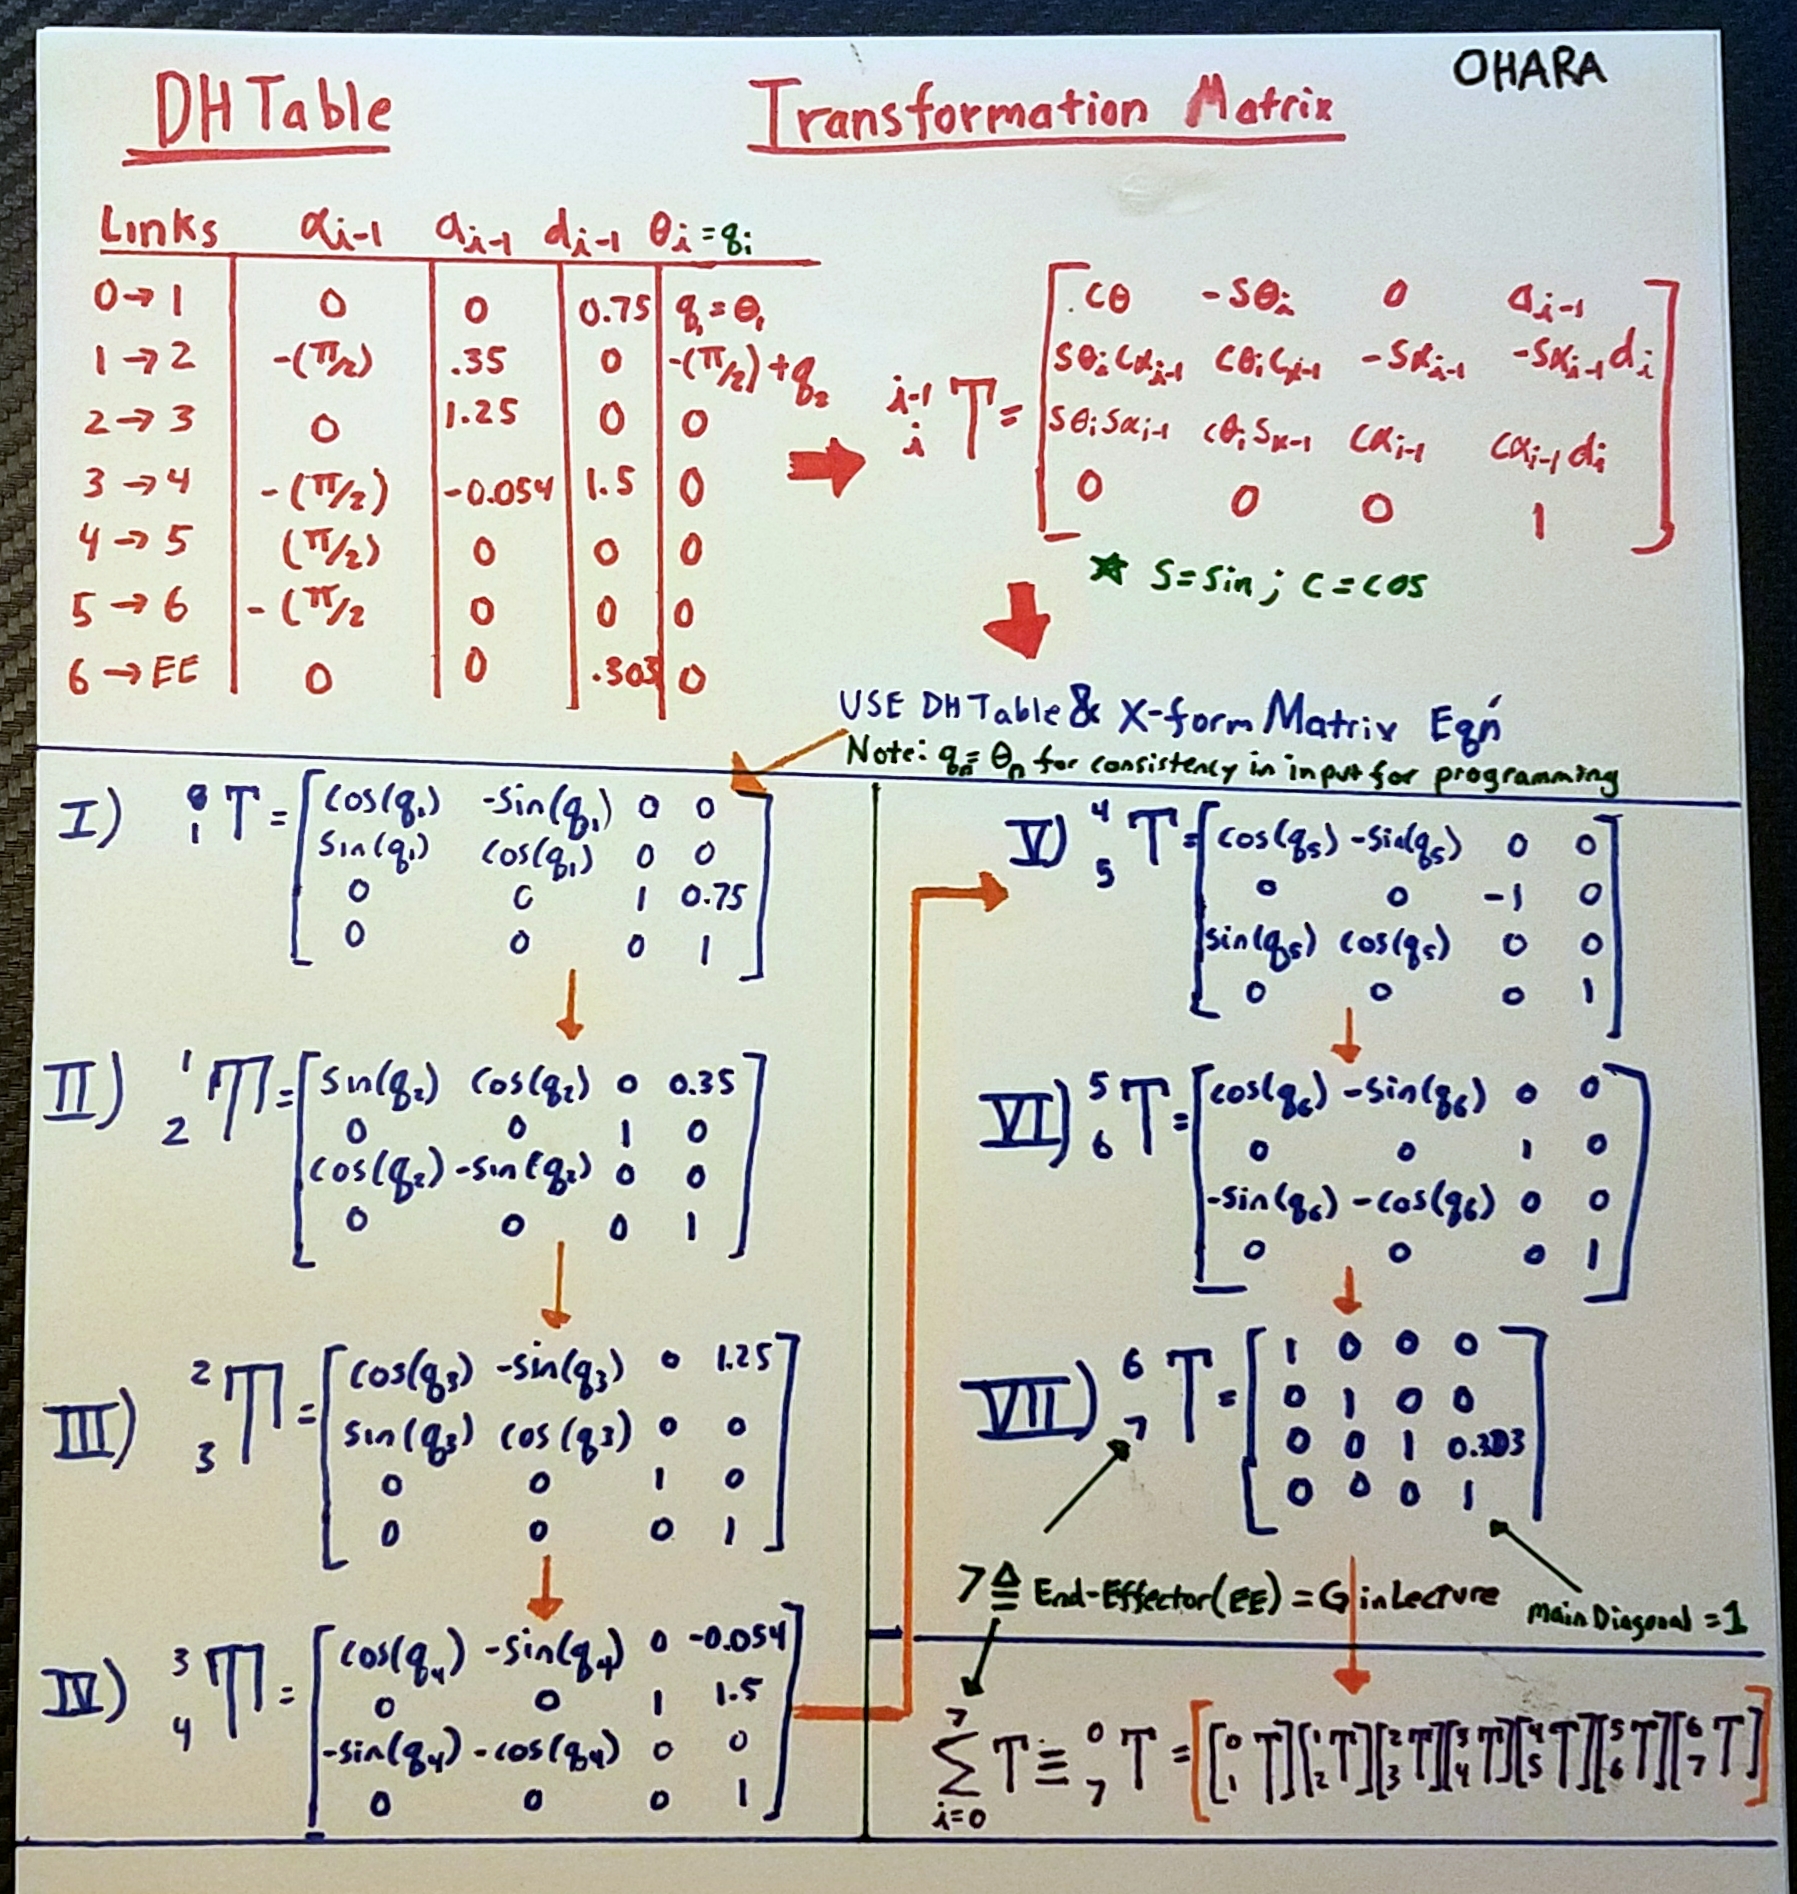 OHARA
DH Table
Transformation Matrix
Links αi-1 ai-1 di-1 θi = qi
0→1 0 0 0.75 q1 = θ1
1→2 -(π/2) .35 0 -(π/2)+q2
2→3 0 1.25 0 0
3→4 -(π/2) -0.054 1.5 0
4→5 (π/2) 0 0 0
5→6 -(π/2 0 0 0
6→EE 0 0 .303 0
cθ -sθi 0 ai-1
sθicαi-1 cθicα-1 -sαi-1 -sαi-1di
i-1 i T =
sθisαi-1 cθisα-1 cαi-1 cαi-1di
0 0 0 1
★ S=sin; C=cos
USE DH Table & X-form Matrix Eq'n
Note: qn = θn for consistency in input for programming
I) 0 1 T =
cos(q1) -sin(q1) 0 0
sin(q1) cos(q1) 0 0
0 0 1 0.75
0 0 0 1
II) 1 2 T =
sin(q2) cos(q2) 0 0.35
0 0 1 0
cos(q2) -sin(q2) 0 0
0 0 0 1
III) 2 3 T =
cos(q3) -sin(q3) 0 1.25
sin(q3) cos(q3) 0 0
0 0 1 0
0 0 0 1
IV) 3 4 T =
cos(q4) -sin(q4) 0 -0.054
0 0 1 1.5
-sin(q4) -cos(q4) 0 0
0 0 0 1
V) 4 5 T =
cos(q5) -sin(q5) 0 0
0 0 -1 0
sin(q5) cos(q5) 0 0
0 0 0 1
VI) 5 6 T =
cos(q6) -sin(q6) 0 0
0 0 1 0
-sin(q6) -cos(q6) 0 0
0 0 0 1
VII) 6 7 T =
1 0 0 0
0 1 0 0
0 0 1 0.303
0 0 0 1
7 ≜ End-Effector(EE) = G in Lecture
main Diagonal = 1
7 Σ i=0 T ≡ 0 7 T = [[0 1 T][1 2 T][2 3 T][3 4 T][4 5 T][5 6 T][6 7 T]]